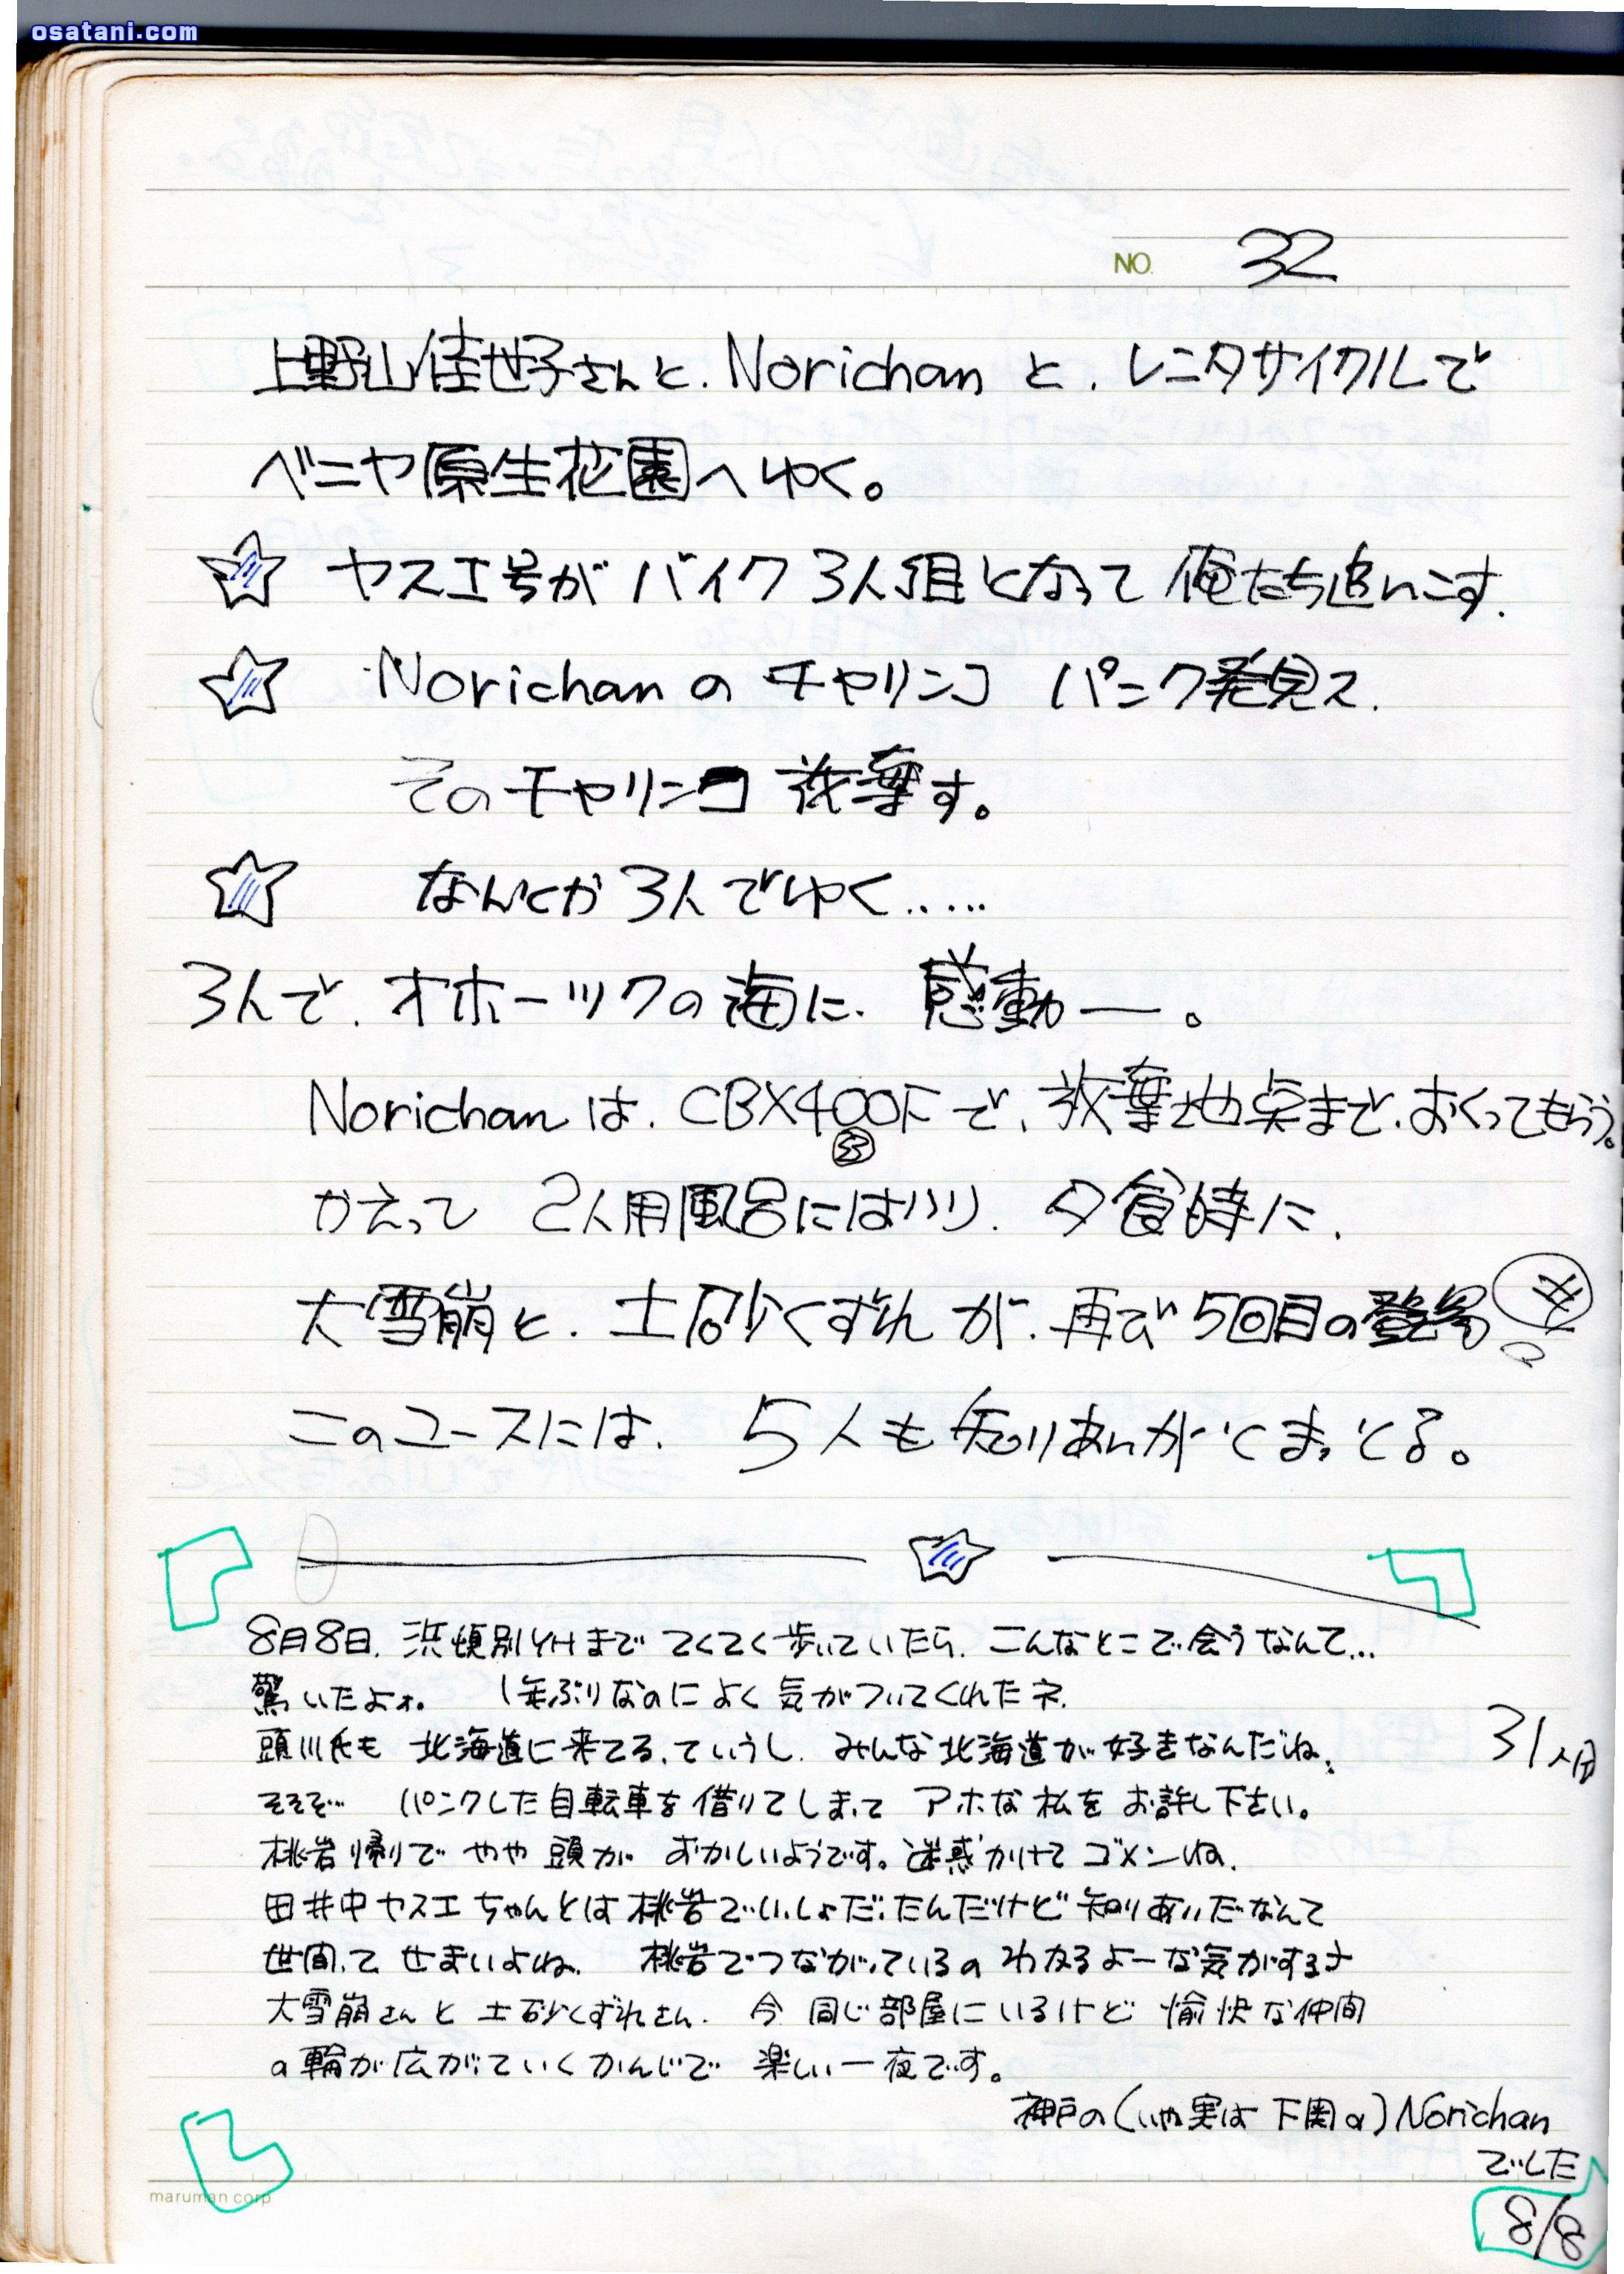 osatani.com
NO. 32
上野山佳世子さんと. Norichan と. レンタサイクルで
ベニヤ原生花園へゆく。
ヤスエ号がバイク3人組となって俺たち追いこす.
Norichanのチャリンコ パンク発見ス.
そのチャリンコ 放棄す。
なんとか3人でゆく.....
3人で. オホーツクの海に. 感動ー。
Norichanは. CBX400Fで. 放棄地点まで. おくってもらう。
かえって 2人用風呂にはいり. 夕食時に.
大雪崩と. 土砂くずれが. 再び5回目の登場
このユースには. 5人も知りあいがとまっとる。
8月8日. 浜頓別YHまで てくてく歩いていたら. こんなとこで会うなんて...
驚いたよォ。 1年ぶりなのによく気がついてくれたネ.
頭川氏も 北海道に来てる. っていうし. みんな北海道が好きなんだね.
31人分
そそそ… パンクした自転車を借りてしまって アホな私を お許し下さい。
桃岩帰りで やや頭が おかしいようです。迷惑かけて ゴメンね.
田井中ヤスエちゃんとは桃岩でいっしょだったんだけど 知りあいだなんて
世間って せまいよね. 桃岩でつながっているの わかるよーな気がするナ
大雪崩さんと 土砂くずれさん. 今 同じ部屋にいるけど 愉快な仲間
の輪が広がっていくかんじで 楽しい一夜です。
神戸の(いや実は 下関の) Norichan
でした
maruman corp
8/8